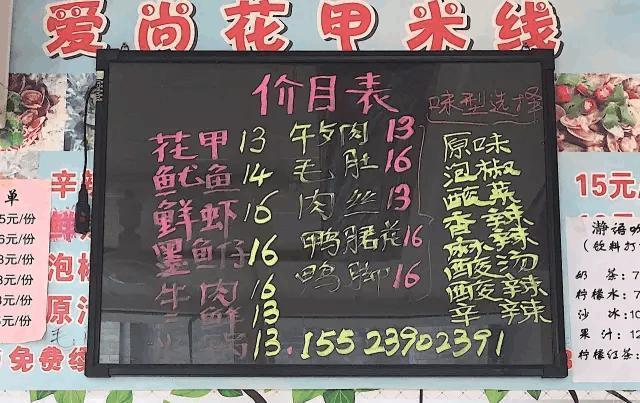 爱尚花甲米线
价目表
味型选择
花甲 13 牛肉 13 原味
鱿鱼 14 毛肚 16 泡椒
鲜虾 16 肉丝 13 酸菜
墨鱼仔 16 鸭胗花 16 香辣
牛肉 16 鸭脚 16 麻辣
鲜 13 酸汤
13 酸辣
辛辣
15523902391
单
5元/份
6元/份
3元/份
8元/份
3元/份
5元/份
辛
鲜
泡椒
原汤
免费续
15元
奶茶:7
柠檬水:7
沙冰:10
果汁:12
柠檬红茶: